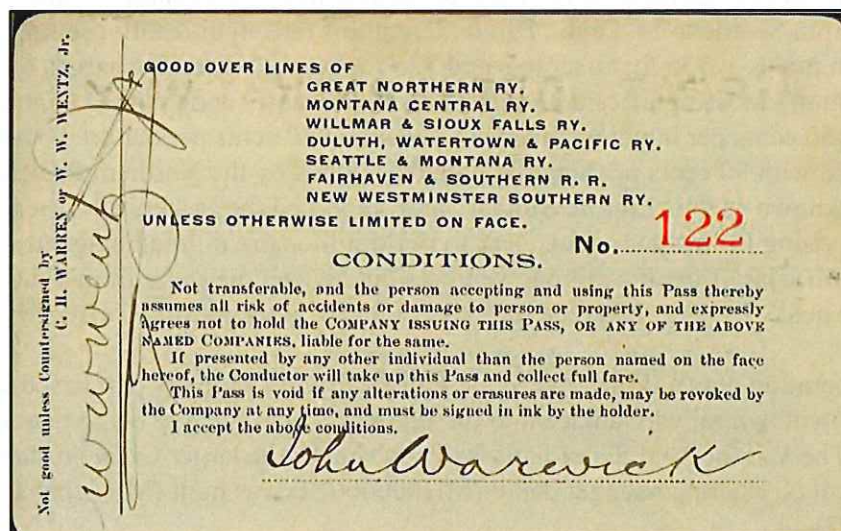 Not good unless Countersigned by
C. H. WARREN or W. W. WENTZ, Jr.
W W Wentz Jr
GOOD OVER LINES OF
GREAT NORTHERN RY.
MONTANA CENTRAL RY.
WILLMAR & SIOUX FALLS RY.
DULUTH, WATERTOWN & PACIFIC RY.
SEATTLE & MONTANA RY.
FAIRHAVEN & SOUTHERN R. R.
NEW WESTMINSTER SOUTHERN RY.
UNLESS OTHERWISE LIMITED ON FACE.
No. 122
CONDITIONS.
Not transferable, and the person accepting and using this Pass thereby
assumes all risk of accidents or damage to person or property, and expressly
agrees not to hold the COMPANY ISSUING THIS PASS, OR ANY OF THE ABOVE
NAMED COMPANIES, liable for the same.
If presented by any other individual than the person named on the face
hereof, the Conductor will take up this Pass and collect full fare.
This Pass is void if any alterations or erasures are made, may be revoked by
the Company at any time, and must be signed in ink by the holder.
I accept the above conditions.
John Warwick